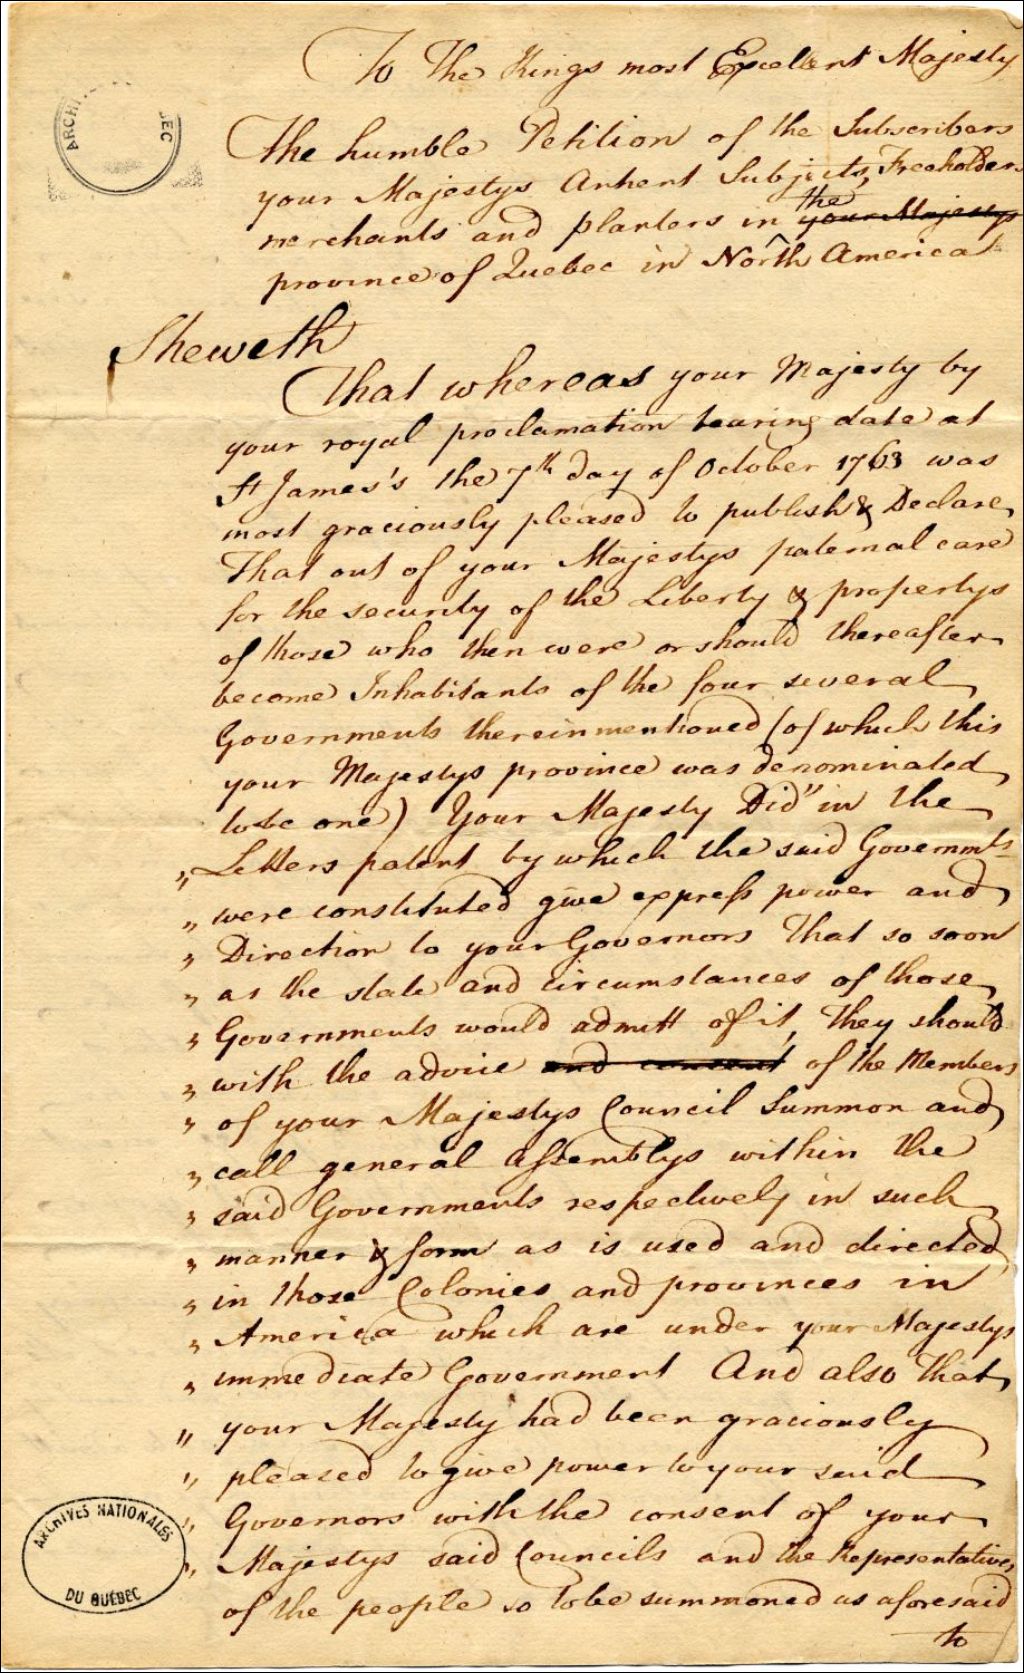 To The Kings most Excellent Majesty
ARCHI
EC
The humble Petition of the Subscribers
your Majestys Antient Subjects, Freeholders
merchants and planters in ^the your Majestys
province of Quebec in North America
Sheweth
That whereas your Majesty by
your royal proclamation bearing date at
St James's the 7th day of October 1763 was
most graciously pleased to publish & Declare,
That out of your Majestys paternal care
for the security of the Liberty & propertys
of those who then were or should thereafter
become Inhabitants of the four several
Governments therein mentioned (of which this
your Majestys province was denominated
to be one) Your Majesty Did " in the
" Letters patent by which the said Governmts
" were constituted give express power and
" Direction to your Governors That so soon
" as the state and circumstances of those
" Governments would admitt of it, They should
" with the advice and consent of the Members
" of your Majestys Council Summon and
" call general Assemblys within the
" said Governments respectively in such
" manner & form as is used and directed
" in those Colonies and provinces in
" America which are under your Majestys
" immediate Government And also That
" your Majesty had been graciously
" pleased to give power to your said
" Governors with the consent of your
" Majestys said Councils and the Representatives
of the people so to be summoned as aforesaid
to
ARCHIVES NATIONALES
DU QUÉBEC